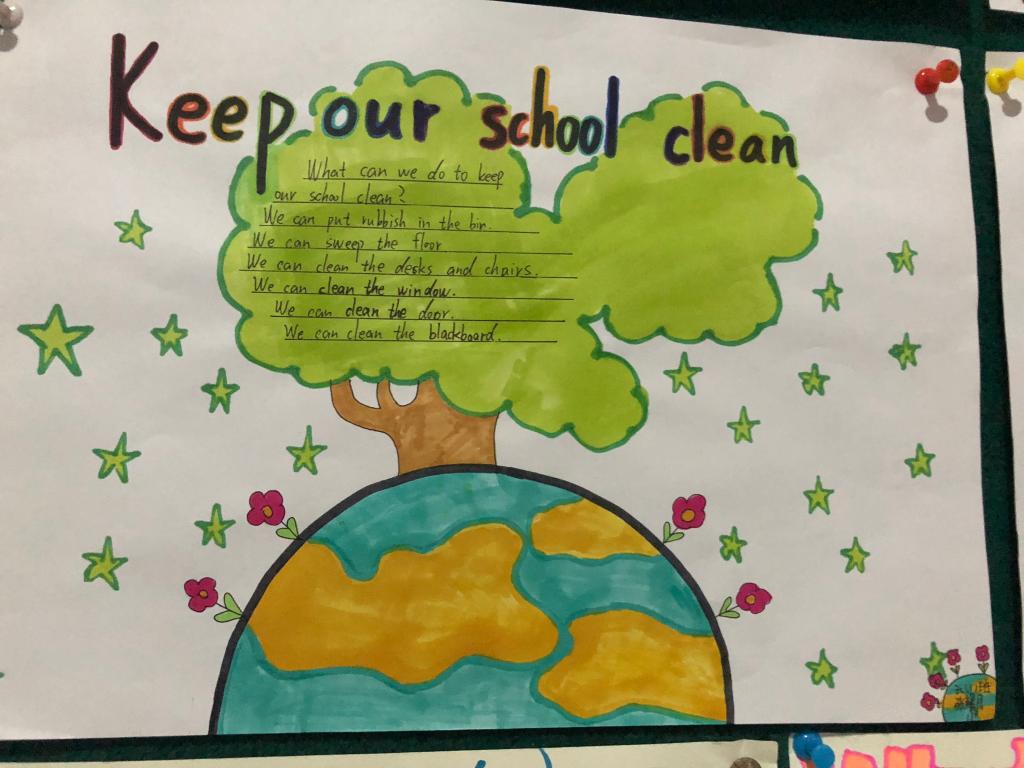 Keep our school clean
What can we do to keep
our school clean?
We can put rubbish in the bin.
We can sweep the floor
We can clean the desks and chairs.
We can clean the window.
We can clean the door.
We can clean the blackboard.